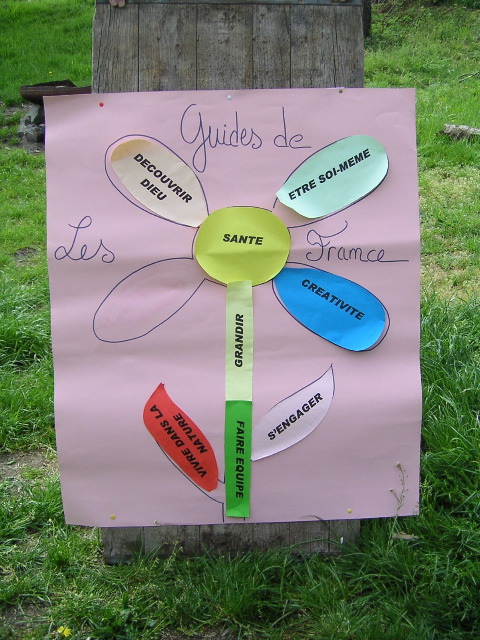 Guides de
Les
France
DECOUVRIR
DIEU
ETRE SOI-MEME
SANTE
CREATIVITE
GRANDIR
VIVRE DANS LA
NATURE
S'ENGAGER
FAIRE EQUIPE